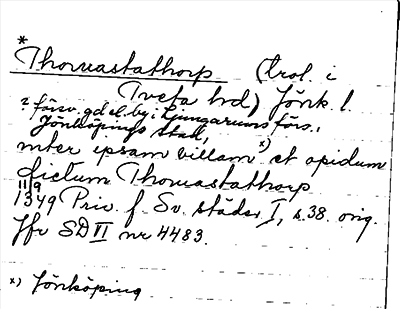 *
Thomastathorp (trol. i
Tveta hd) Jönk. l.
? försv. gd el. by i Ljungarums förs.,
Jönköpings stad,
inter ipsam villam x) et opidum
dictum Thomastathorp
11/9
1349 Priv. f. Sv. städer I, s. 38. orig.
Jfr SD VI nr 4483.
x) Jönköping